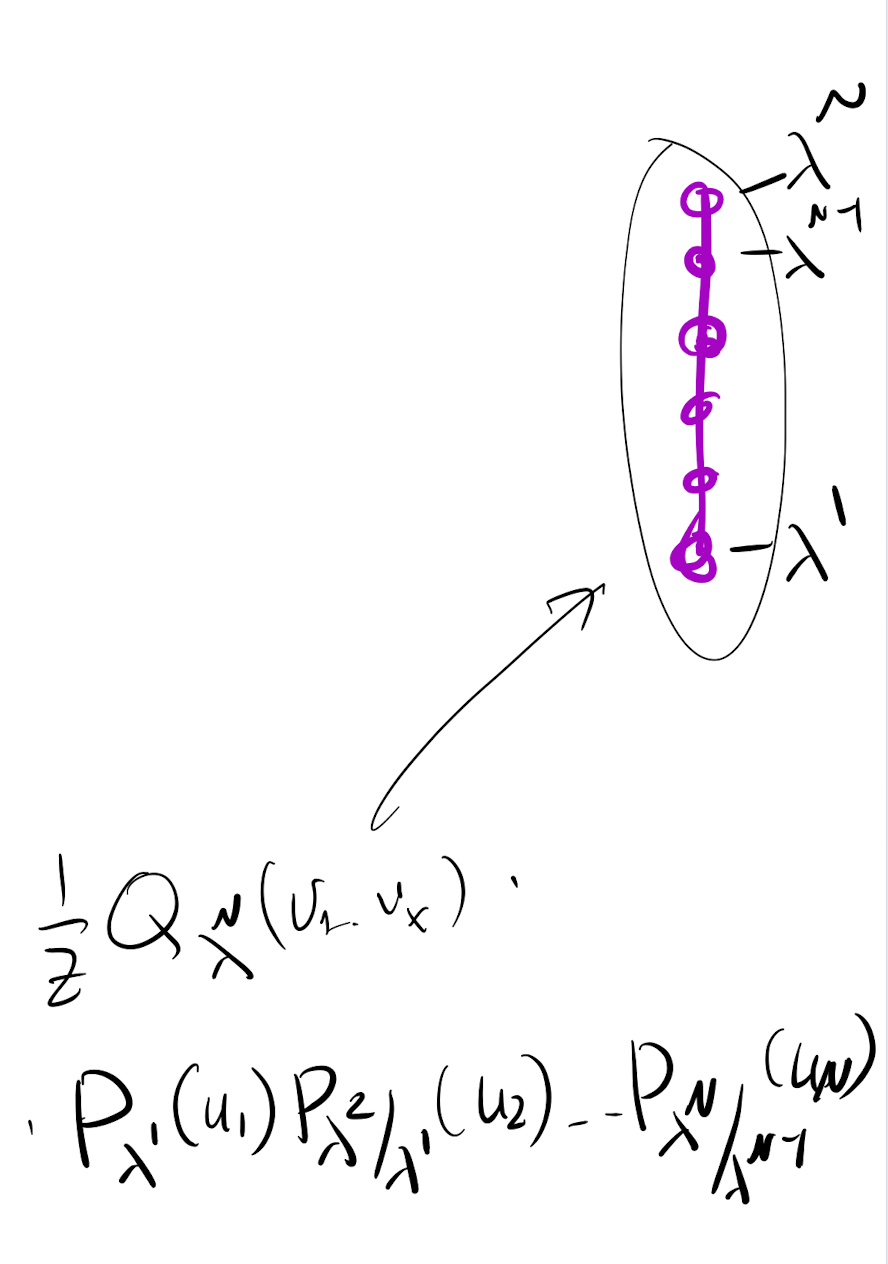 λ^N
λ^{N-1}
λ^1
\frac{1}{Z} Q_{λ^N}(v_1..v_x) ·
· P_{λ^1}(u_1) P_{λ^2/λ^1}(u_2) --- P_{λ^N/λ^{N-1}}(u_N)